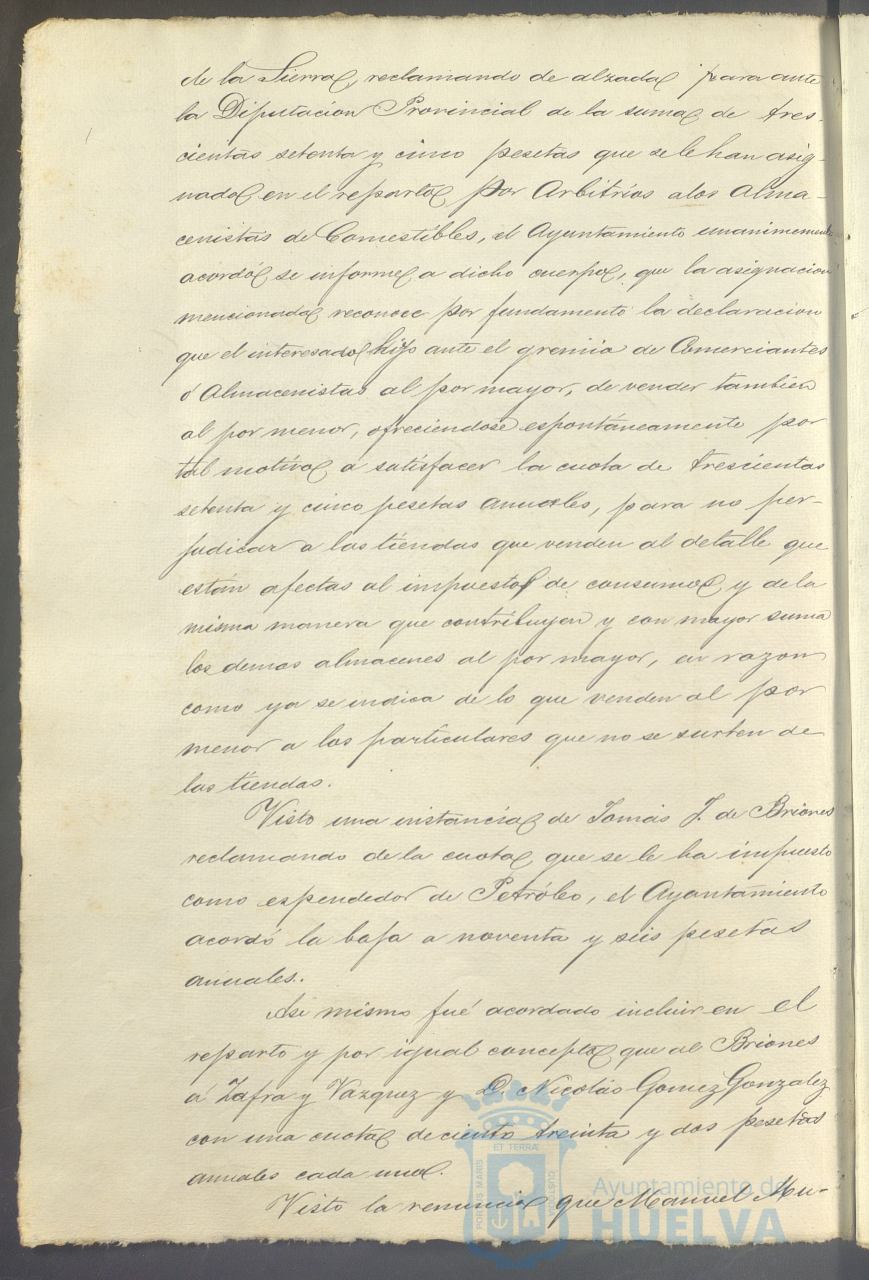 de la Sierra, reclamando de alzada para ante
la Diputacion Provincial de la suma de tres-
cientas setenta y cinco pesetas que se le han asig-
nado en el reparto por Arbitrios a los Alma-
cenistas de Comestibles, el Ayuntamiento unanimemente
acordó se informe a dicho cuerpo, que la asignacion
mencionada reconoce por fundamento la declaracion
que el interesado hijo ante el gremia de Comerciantes
ó Almacenistas al por mayor, de vender tambien
al por menor, ofreciendose espontáneamente por
tal motivo a satisfacer la cuota de trescientas
setenta y cinco pesetas anuales, para no per-
judicar a las tiendas que venden al detalle que
están afectas al impuesto de consumos y de la
misma manera que contribuyen y con mayor suma
los demas almacenes al por mayor, en razon
como ya se indica de lo que venden al por
menor a los particulares que no se surten de
las tiendas.
Visto una instancia de Tomás J. de Briones
reclamando de la cuota que se le ha impuesto
como espendedor de Petróleo, el Ayuntamiento
acordó la baja a noventa y seis pesetas
anuales.
Asi mismo fué acordado incluir en el
reparto y por igual concepto que al Briones
á Zafra y Vazquez y D. Nicolás Gomez Gonzalez
con una cuota de ciento treinta y dos pesetas
anuales cada uno.
Visto la renuncia que Manuel Mu-
PORTUS MARIS
ET TERRA
CUSTODIA
Ayuntamiento de
HUELVA